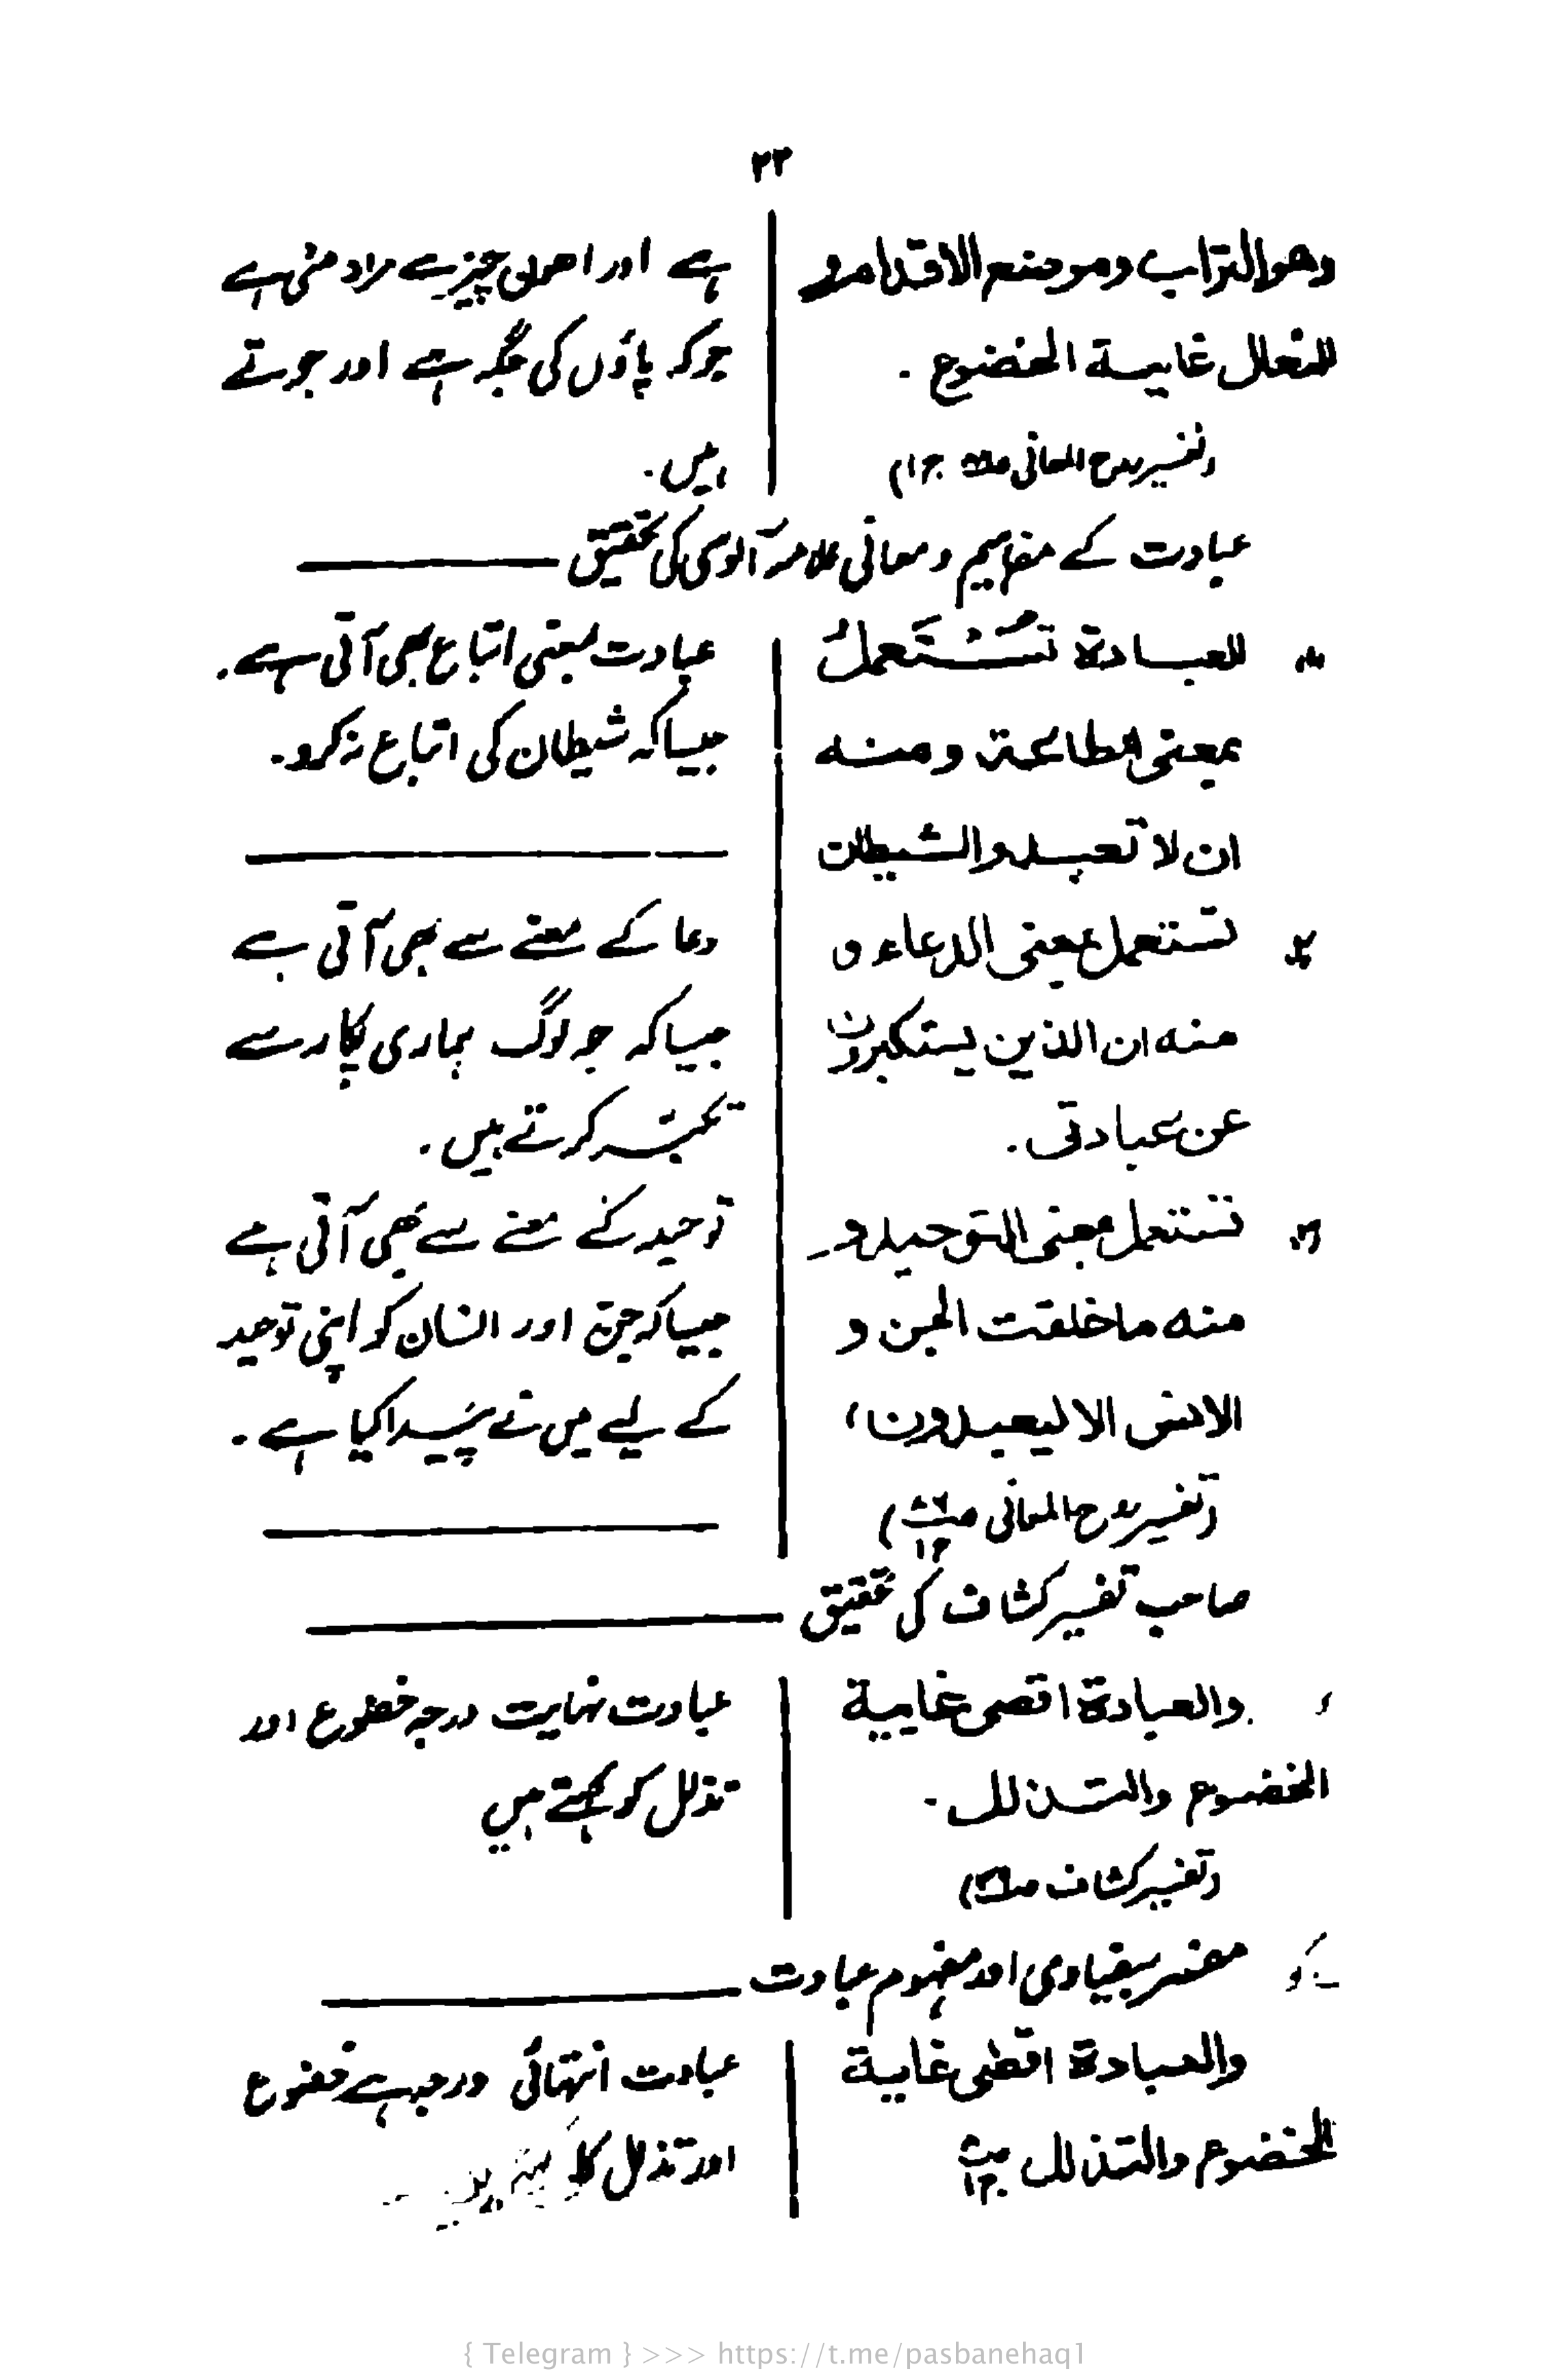 ٣٣
وهو التراب وموضع الاقدام و
النعال غاية الخضوع .
(تفسیر روح المعانی ج ١)
ہے اور اھون چیز سے مراد مٹی ہے
جو کہ پاؤں کی جگہ ہے اور جوتے
ہیں.
عبادت کے مفاہیم و معانی علامہ آلوسی کی تحقیق
١ العبادة تُسْتَعملُ
بمعنى الطاعة ومنه
ان لا تعبدوا الشيطان
عبادت بمعنی اتباع بھی آتی ہے.
جیسا کہ شیطان کی اتباع نہ کرو.
٢ تستعمل بمعنى الدعاء و
منه ان الذين يستكبرون
عن عبادتى.
دعا کے معنے سے بھی آتی ہے
جیسا کہ جو لوگ ہماری پکار سے
تکبّر کرتے ہیں.
٣ تستعمل بمعنى التوحيد و
منه ما خلقت الجن و
الانس الا ليعبدون،
(تفسیر روح المعانی)
توحید کے معنے سے بھی آتی ہے
جیسا کہ جن اور انسان کو اپنی توحید
کے لیے میں نے پَیدا کیا ہے.
صاحب تفسیر کشاف کی تحقیق
والعبادة اقصى غاية
الخضوع والتذلل.
(تفسیر کشاف)
عبادت نہایت درجہ خضوع اور
تذلل کو کہتے ہیں
مفسر بیضاوی اور مفہوم عبادت
والعبادة اقصى غاية
الخضوع والتذلل
عبادت انتہائی درجہ ہے خضوع
اور تذلل کا
{ Telegram } >>> https://t.me/pasbanehaq1